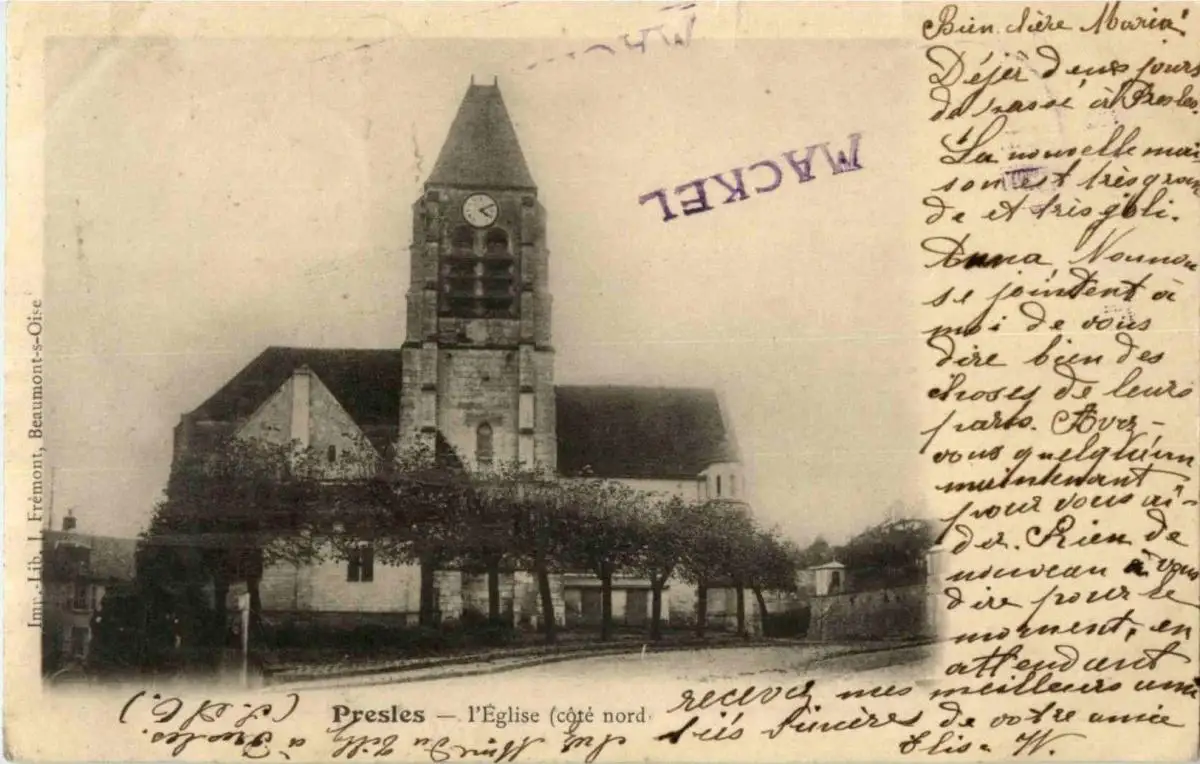 Bien chère Maria!
Déjà deux jours
de passé à Presles.
La nouvelle mai-
son est très gran
de et très joli.
Anna, Nounou
se jointent à
moi de vous
dire bien des
choses de leurs
parts. Avez-
vous quelqu'un
maintenant
pour vous ai-
der. Rien de
nouveau à vous
dire pour le
moment, en
attendant
recevez mes meilleurs ami
tiés sincères de votre amie
Elise W.
MACKEL
MAC
Imp.-Lib. J. Frémont, Beaumont-s-Oise
Presles — l'Église (côté nord
à Presles.